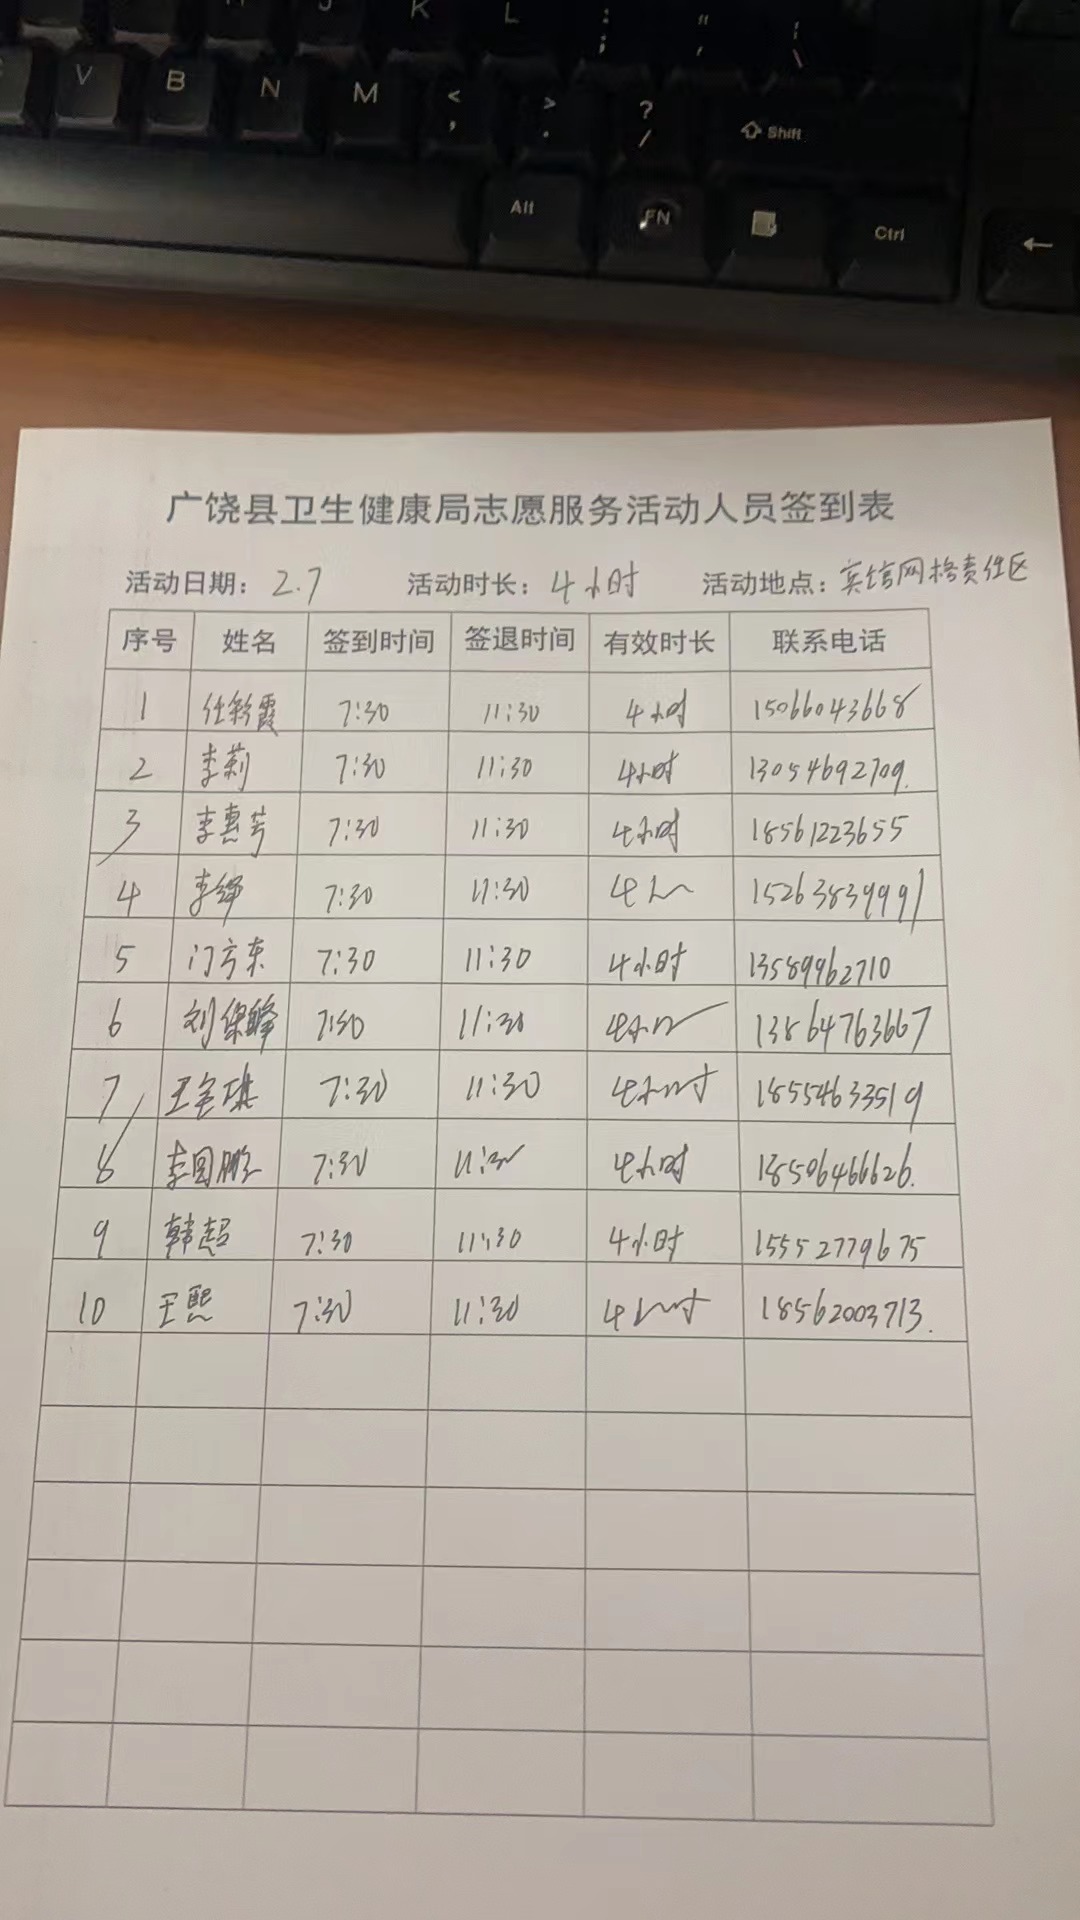 J K L : ; " ' | \
V B N M < , > . ? / Shift
Alt FN Ctrl ←
广饶县卫生健康局志愿服务活动人员签到表
活动日期: 2.7 活动时长: 4小时 活动地点: 宾馆网格责任区
序号 姓名 签到时间 签退时间 有效时长 联系电话
1 任彩霞 7:30 11:30 4小时 15066043668
2 李莉 7:30 11:30 4小时 13054692709.
3 李惠芳 7:30 11:30 4小时 18561223655
4 李 7:30 11:30 4小 15263839991
5 门方东 7:30 11:30 4小时 13589962710
6 刘保峰 7:30 11:30 4小时 13864763667
7 王金琪 7:30 11:30 4小时 18554633519
8 李国鹏 7:30 11:30 4小时 18506466626.
9 韩超 7:30 11:30 4小时 15552779675
10 王熙 7:30 11:30 4小时 18562003713.